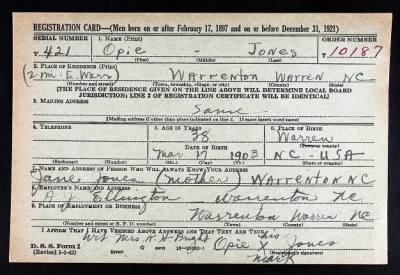 REGISTRATION CARD—(Men born on or after February 17, 1897 and on or before December 31, 1921)
SERIAL NUMBER 1. NAME (Print) ORDER NUMBER
T. 421 Opie - Jones T 10187
(First) (Middle) (Last)
2. PLACE OF RESIDENCE (Print)
(2 mi. E. Warr) Warrenton Warren NC
(Number and street) (Town, township, village, or city) (County) (State)
[THE PLACE OF RESIDENCE GIVEN ON THE LINE ABOVE WILL DETERMINE LOCAL BOARD
JURISDICTION; LINE 2 OF REGISTRATION CERTIFICATE WILL BE IDENTICAL]
3. MAILING ADDRESS
Same
(Mailing address if other than place indicated on line 2. If same insert word same)
4. TELEPHONE 5. AGE IN YEARS 6. PLACE OF BIRTH
38 Warren
DATE OF BIRTH (Town or county)
Mar 17 1903 NC - USA
(Exchange) (Number) (Mo.) (Day) (Yr.) (State or country)
7. NAME AND ADDRESS OF PERSON WHO WILL ALWAYS KNOW YOUR ADDRESS
Jones (mother) Warrenton NC
8. EMPLOYER'S NAME AND ADDRESS
A. J. Ellington Warrenton NC
9. PLACE OF EMPLOYMENT OR BUSINESS
Warrenton Warren NC
(Number and street or R. F. D. number) (Town) (County) (State)
I AFFIRM THAT I HAVE VERIFIED ABOVE ANSWERS AND THAT THEY ARE TRUE.
Wit Mrs. R. H. Bright his
D. S. S. Form 1 Opie X Jones
(Revised 1-1-42) (over) mark